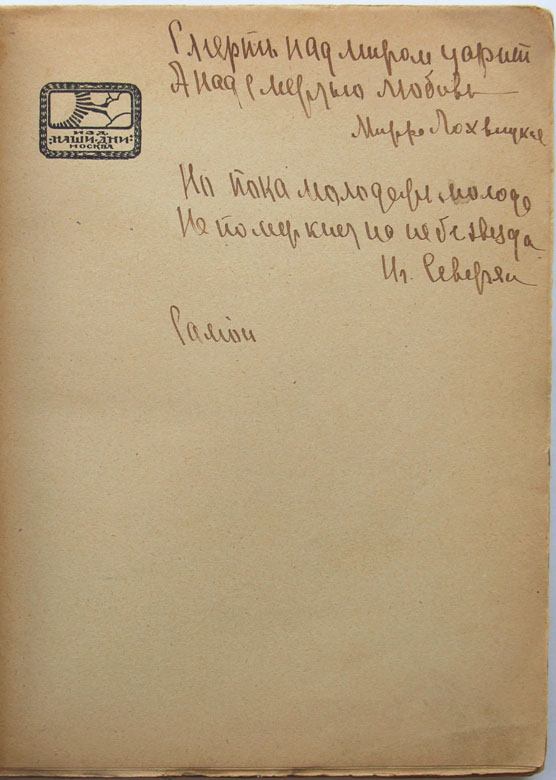 ИЗД.
НАШИ•ДНИ
МОСКВА
Смерть над миром царит
А над смертью любовь
Мирра Лохвицкая
Но пока молодежь молода
Не померкнет на небе звезда
Иг. Северян